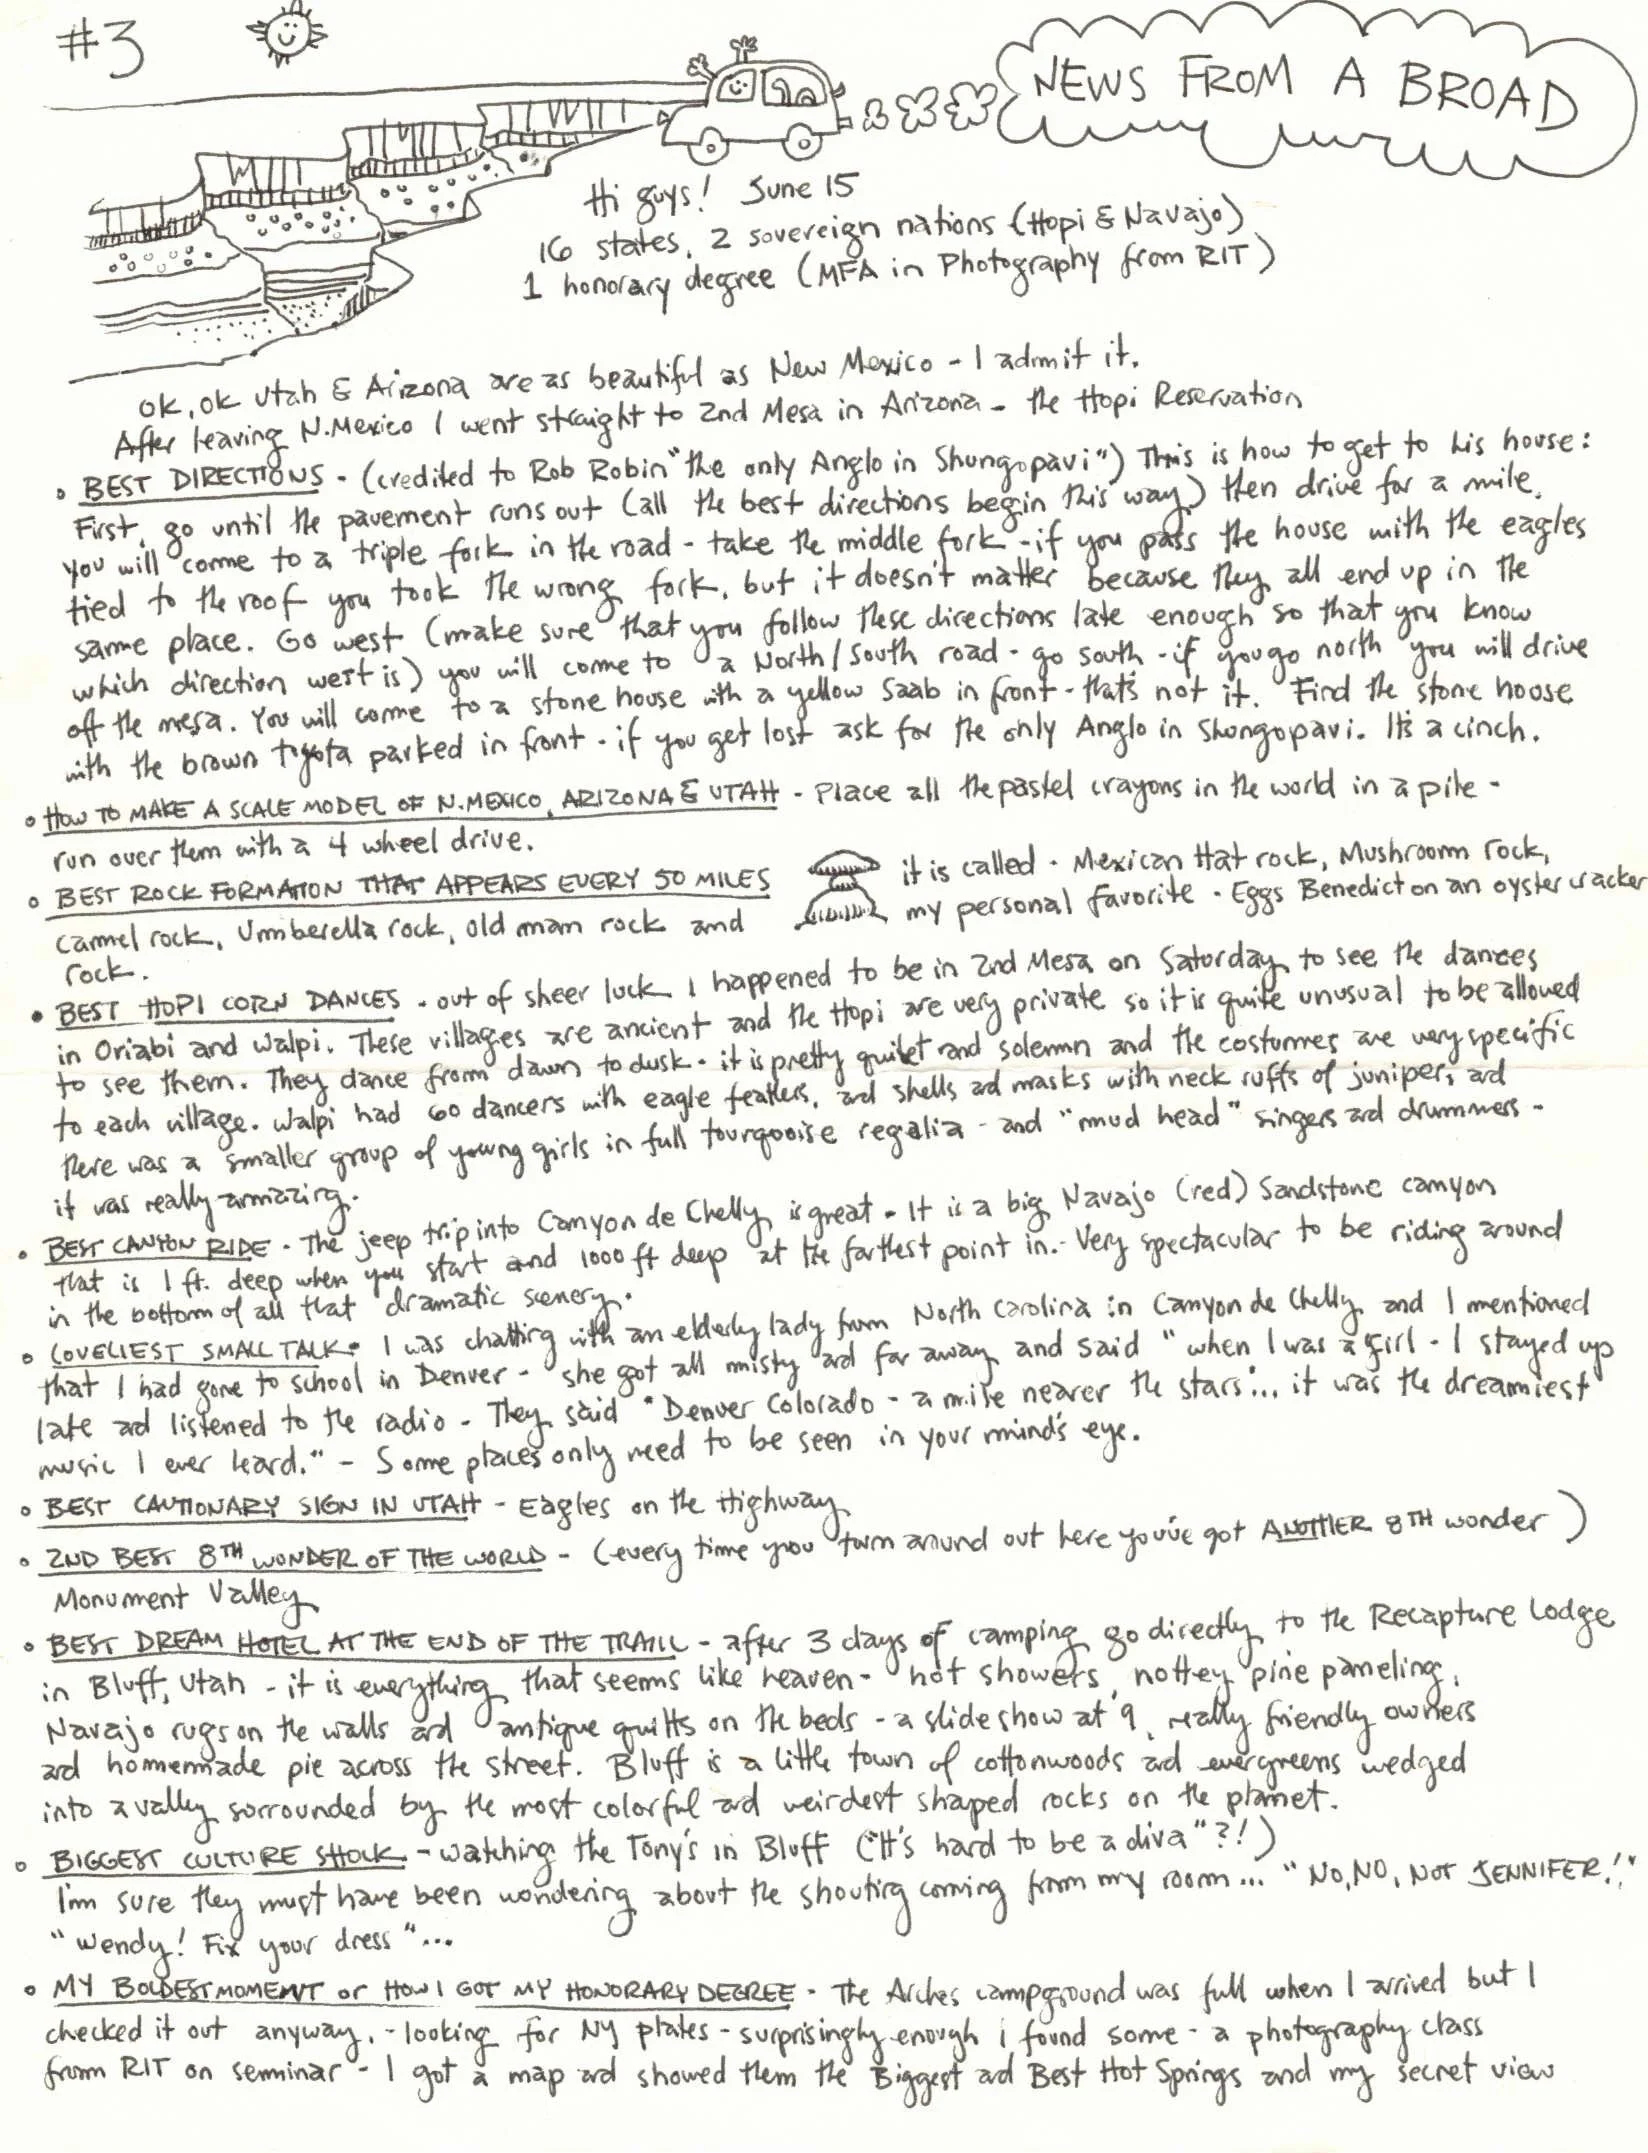 #3
NEWS FROM A BROAD
Hi guys! June 15
16 states, 2 sovereign nations (Hopi & Navajo)
1 honorary degree (MFA in Photography from RIT)
OK, OK Utah & Arizona are as beautiful as New Mexico - I admit it.
After leaving N.Mexico I went straight to 2nd Mesa in Arizona - the Hopi Reservation
• BEST DIRECTIONS - (credited to Rob Robin "the only Anglo in Shungopavi") This is how to get to his house:
First, go until the pavement runs out (all the best directions begin this way) then drive for a mile.
You will come to a triple fork in the road - take the middle fork - if you pass the house with the eagles
tied to the roof you took the wrong fork, but it doesn't matter because they all end up in the
same place. Go west (make sure that you follow these directions late enough so that you know
which direction west is) you will come to a North/South road - go south - if you go north you will drive
off the mesa. You will come to a stone house with a yellow Saab in front - that's not it. Find the stone house
with the brown toyota parked in front - if you get lost ask for the only Anglo in Shungopavi. It's a cinch.
• HOW TO MAKE A SCALE MODEL OF N.MEXICO, ARIZONA & UTAH - Place all the pastel crayons in the world in a pile -
run over them with a 4 wheel drive.
• BEST ROCK FORMATION THAT APPEARS EVERY 50 MILES it is called - Mexican Hat rock, Mushroom rock,
camel rock, Umberella rock, old man rock and my personal favorite - Eggs Benedict on an oyster cracker
rock.
• BEST HOPI CORN DANCES - out of sheer luck I happened to be in 2nd Mesa on Saturday to see the dances
in Oriabi and Walpi. These villages are ancient and the Hopi are very private so it is quite unusual to be allowed
to see them. They dance from dawn to dusk - it is pretty quiet and solemn and the costumes are very specific
to each village. Walpi had 60 dancers with eagle feathers, and shells and masks with neck ruffs of juniper, and
there was a smaller group of young girls in full tourqooise regalia - and "mud head" singers and drummers -
it was really amazing.
• BEST CANYON RIDE - The jeep trip into Canyon de Chelly is great - It is a big Navajo (red) Sandstone canyon
that is 1 ft. deep when you start and 1000 ft deep at the farthest point in. - Very spectacular to be riding around
in the bottom of all that dramatic scenery.
• LOVELIEST SMALL TALK - I was chatting with an elderly lady from North Carolina in Canyon de Chelly and I mentioned
that I had gone to school in Denver - she got all misty and far away and said "when I was a girl - I stayed up
late and listened to the radio - They said "Denver Colorado - a mile nearer the stars"... it was the dreamiest
music I ever heard." - Some places only need to be seen in your mind's eye.
• BEST CAUTIONARY SIGN IN UTAH - Eagles on the Highway
• 2ND BEST 8TH WONDER OF THE WORLD - (every time you turn around out here you've got ANOTHER 8TH wonder)
Monument Valley
• BEST DREAM HOTEL AT THE END OF THE TRAIL - after 3 days of camping go directly to the Recapture Lodge
in Bluff, Utah - it is everything that seems like heaven - hot showers, nottey pine paneling,
Navajo rugs on the walls and antique quilts on the beds - a slide show at 9, really friendly owners
and homemade pie across the street. Bluff is a little town of cottonwoods and evergreens wedged
into a vally surrounded by the most colorful and weirdest shaped rocks on the planet.
• BIGGEST CULTURE SHOCK - watching the Tony's in Bluff ("It's hard to be a diva"?!)
I'm sure they must have been wondering about the shouting coming from my room... "NO, NO, NOT JENNIFER!!"
"Wendy! Fix your dress"...
• MY BOLDEST MOMENT or HOW I GOT MY HONORARY DEGREE - The Arches campground was full when I arrived but I
checked it out anyway, - looking for NY plates - surprisingly enough I found some - a photography class
from RIT on seminar - I got a map and showed them the Biggest and Best Hot Springs and my secret view